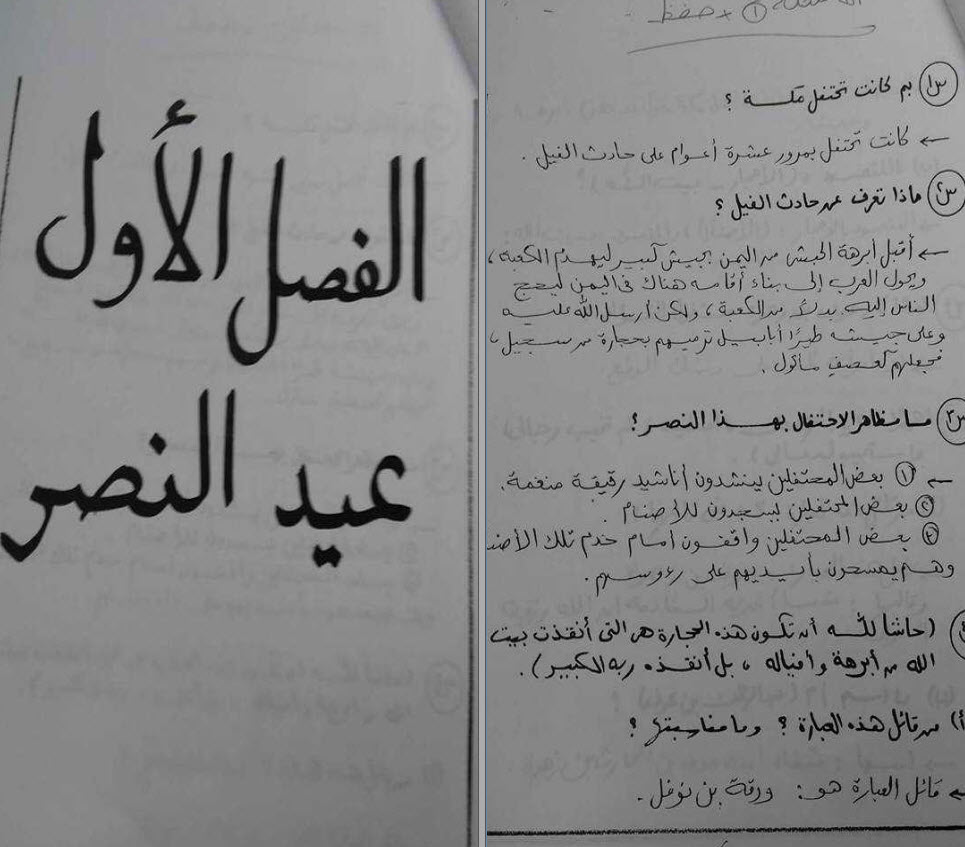 الفصل الأول
عيد النصر
حفظ
س١ بم كانت تحتفل مكة ؟
← كانت تحتفل بمرور عشرة أعوام على حادث الفيل .
س٢ ماذا تعرف عن حادث الفيل ؟
← أقبل أبرهة الحبشى من اليمن بجيش كبير ليهدم الكعبة ،
ويحول العرب إلى بناء أقامه هناك فى اليمن ليحج
الناس إليه بدلاً من الكعبة ، ولكن أرسل الله عليه
وعلى جيشه طيرًا أبابيل ترميهم بحجارة من سجيل ،
فجعلهم كعصف مأكول .
س٣ ما مظاهر الاحتفال بهذا النصر ؟
← ١ بعض المحتفلين ينشدون أناشيد رقيقة منغمة .
٢ بعض المحتفلين يسجدون للأصنام .
٣ بعض المحتفلين واقفون أمام خدم تلك
وهم يمسحون بأيديهم على رءوسهم .
(حاشا لله أن تكون هذه الحجارة هى التى أنقذت بيت
الله من أبرهة وأفياله ، بل أنقذه ربه الكبير) .
أ) من قائل هذه العبارة ؟ وما مناسبتها ؟
← قائل العبارة هو : ورقة بن نوفل .